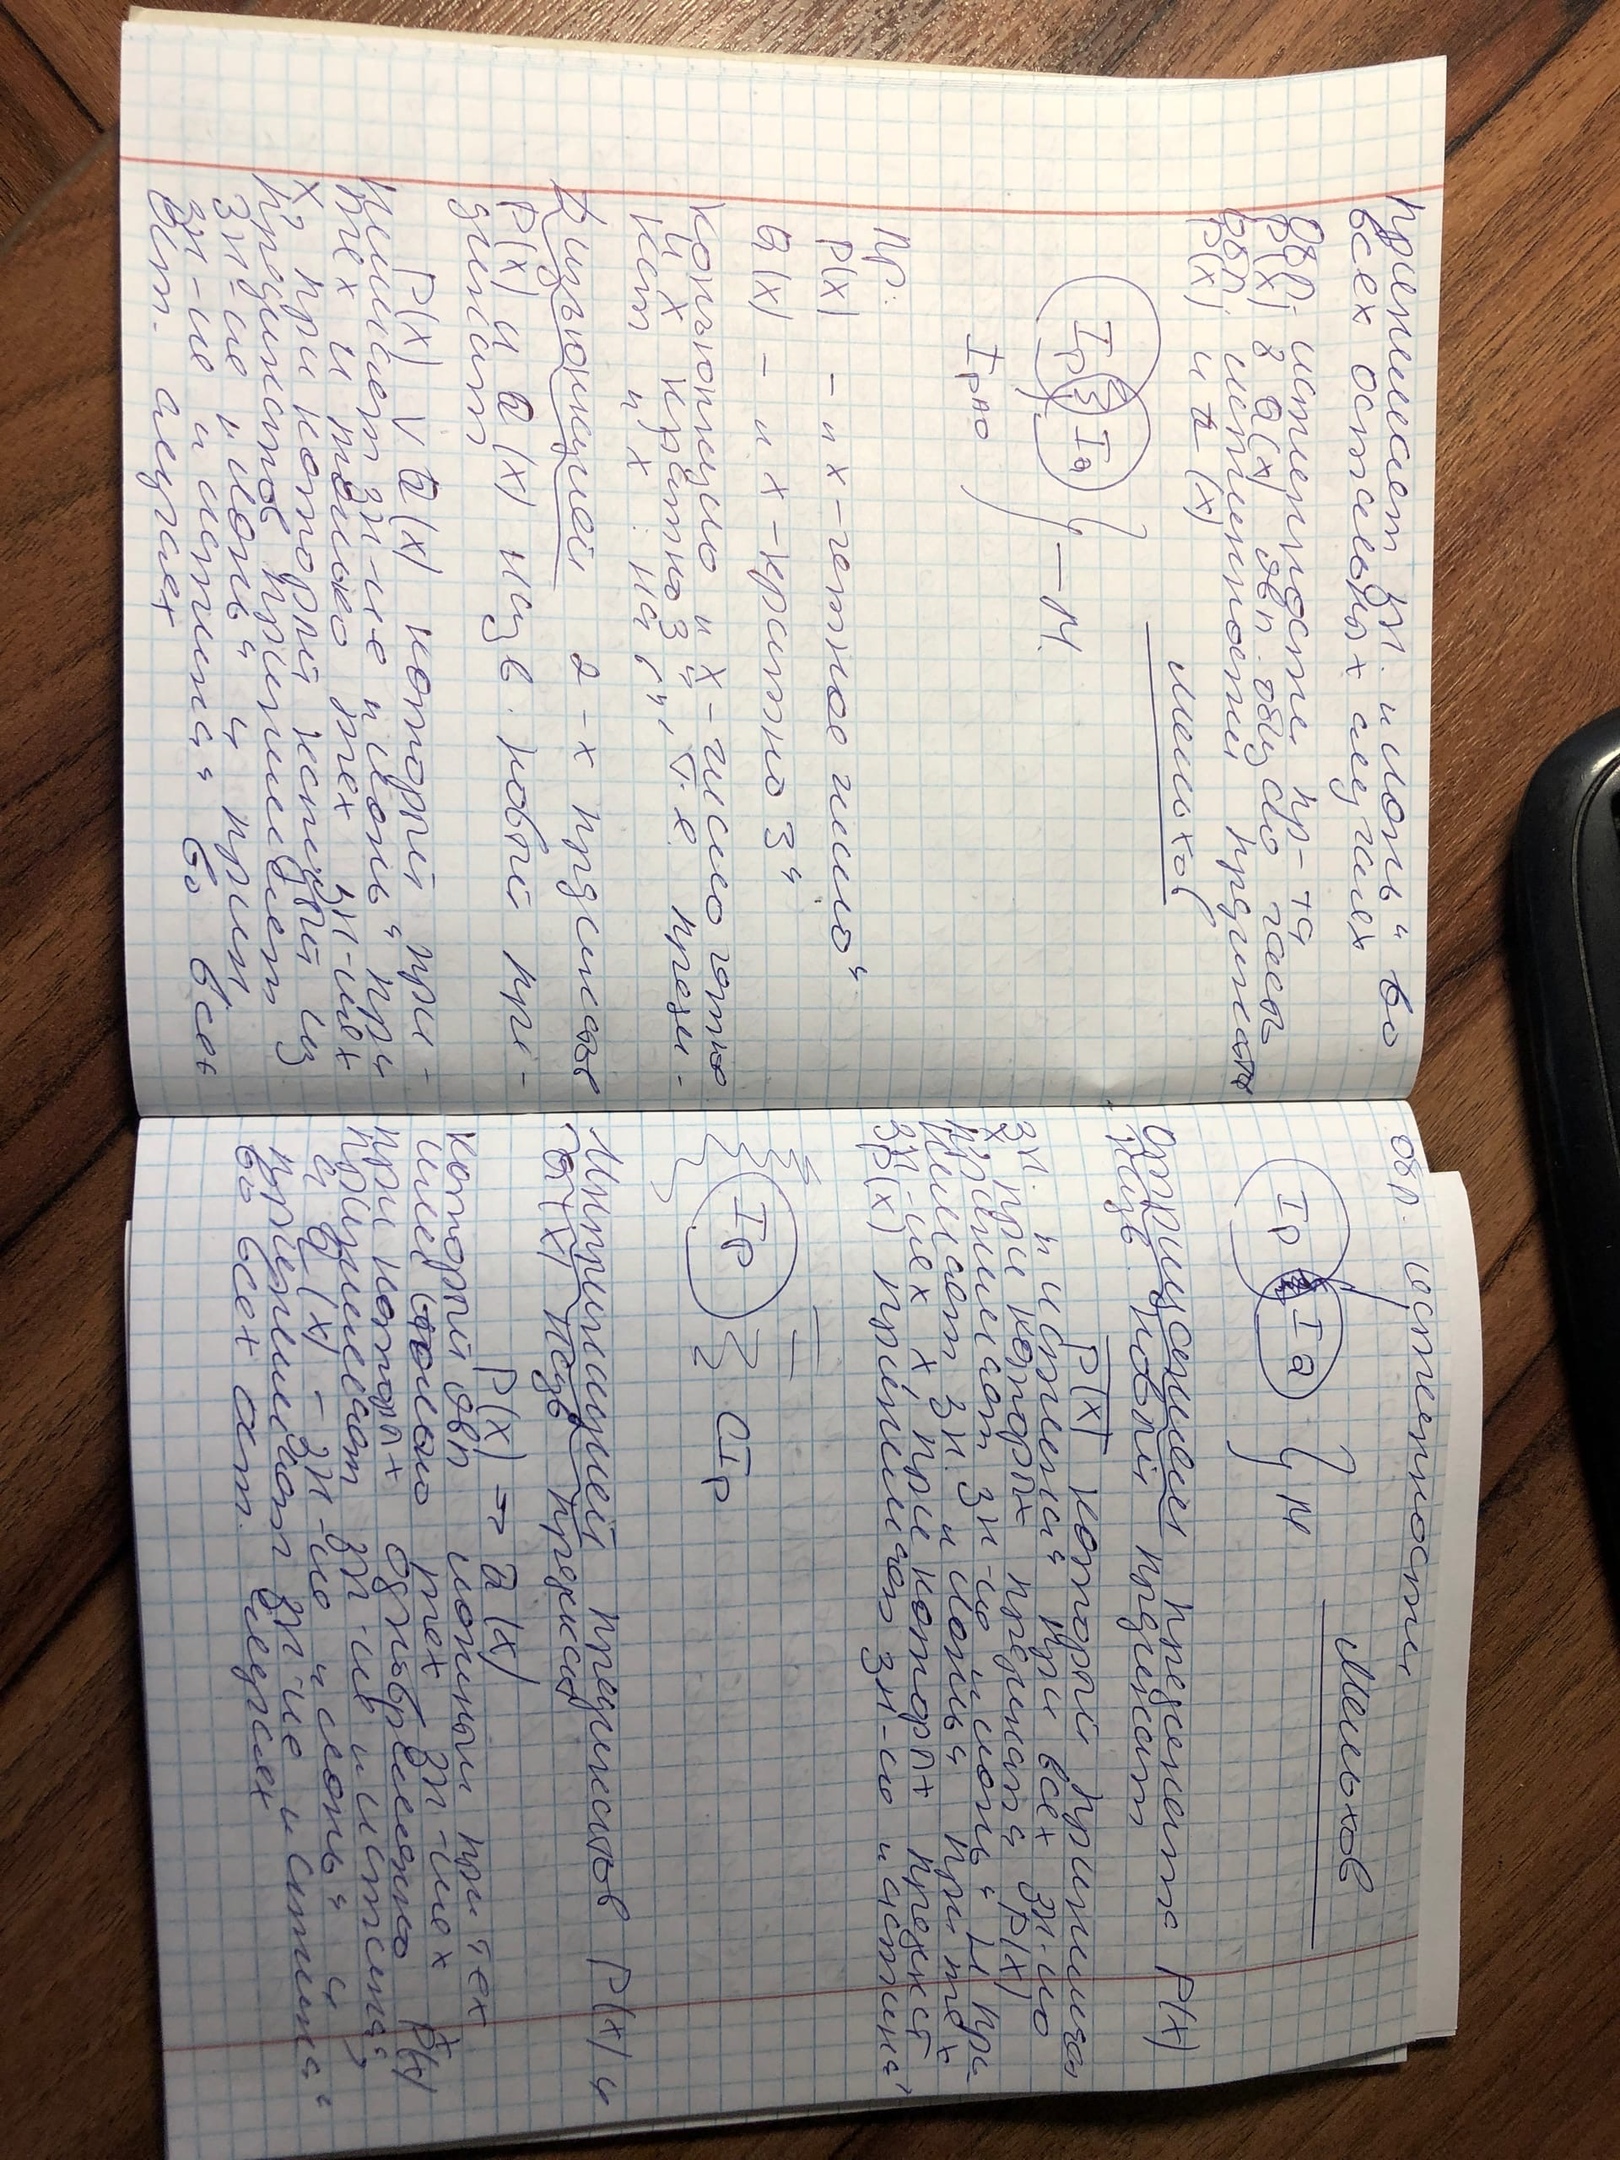 принимает зн. „ложь“ во
всех остальных случаях
обл. истинности пр-та
P(x) & Q(x) явл. общую часть
обл. истинности предиката
P(x) и Q(x)
Мельхов
Ip IQ } — М.
Пр:
P(x) – „x – четное число“
Q(x) – „x – кратно 3“
Конъюнкцию „x – число четное
и x кратно 3“, т.е. преди-
кат „x : на 6“
Дизъюнкцией 2-х предикатов
P(x) и Q(x) назв. новый пре-
дикат
P(x) ∨ Q(x) который при-
нимает зн-ие „ложь“ при
тех и только тех зн-иях
x, при который каждый из
предикатов принимает
зн-ие „ложь“ и прин.
зн-ие „истина“ во всех
ост. случаях
обл. истинности
Мельхов
Ip IQ } М
Отрицанием предиката P(x)
назв. новый предикат
P̅(̅x̅)̅ который принимает
зн. „истина“ при всех зн-ию
x, при которых предиката P(x)
принимает зн-ие „ложь“ и при-
нимает зн. „ложь“ при тех
зн-иях x, при которых предикат
P(x) принимает зн-ие „истина“
Ip CIp
Импликацией предикатов P(x) и
Q(x) назв предикат
P(x) → Q(x)
который явл ложным при тех
или только тех зн-иях x
при которых одновременно P(x)
принимает зн-ие „истина“,
а Q(x) – зн-ие „ложь“ и
принимает зн-ие „истина“
во всех ост. случаях